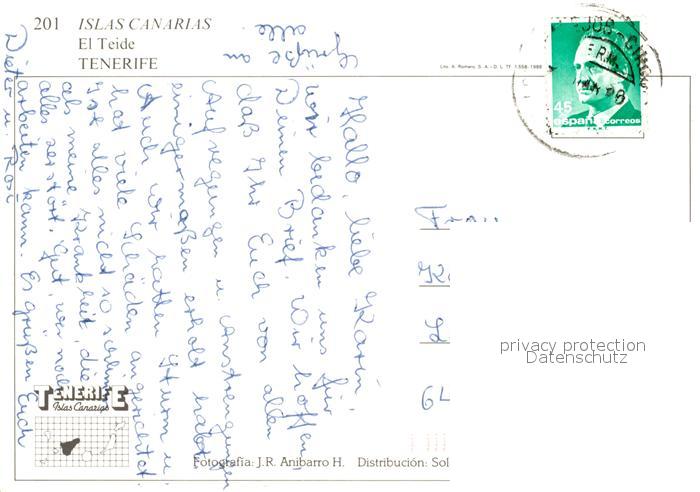 201 ISLAS CANARIAS
El Teide
TENERIFE
Lito. A. Romero, S. A. - D. L. TF. 1.558-1988
45
españa correos
F.N.M.T.
Grüße an
alle.
Hallo, liebe Karin,
wir bedanken uns für
Deinen Brief. Wir hoffen,
daß Ihr Euch von allen
Aufregungen u. Anstrengungen
einigermaßen erholt habt.
Auch wir hatten Sturm u.
hat viele Schäden angerichtet.
Ist alles nicht so schlimm
als meine Krankheit, die
alles zerstört. Gut, wer noch
arbeiten kann. Es grüßen Euch
Dieter u. Rosi
Frau
64
privacy protection
Datenschutz
TENERIFE
Islas Canarias
Fotografía: J.R. Anibarro H. Distribución: Sol